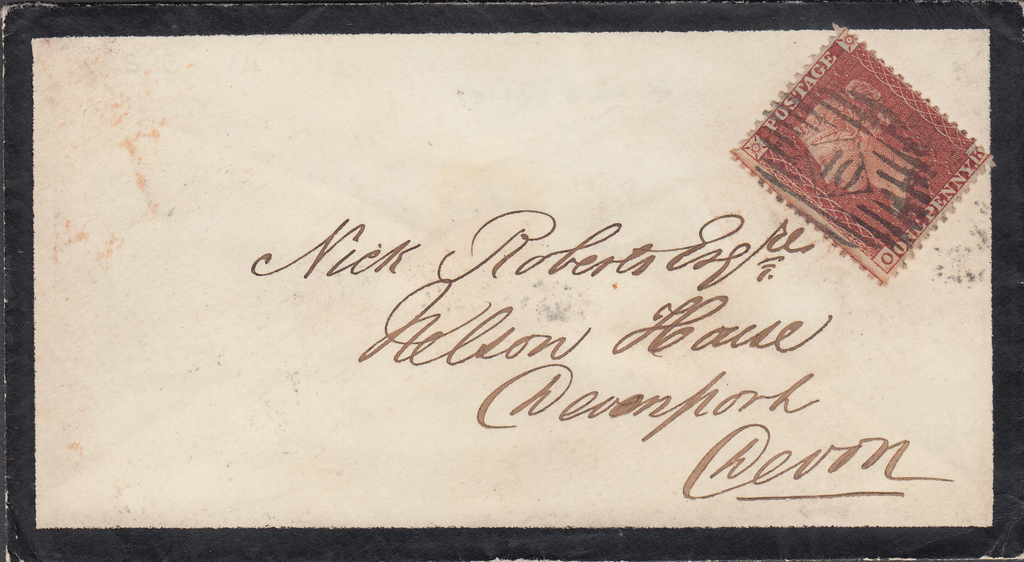 POSTAGE
ONE PENNY
10
Nick Roberts Esqre
Nelson House
Devonport
Devon